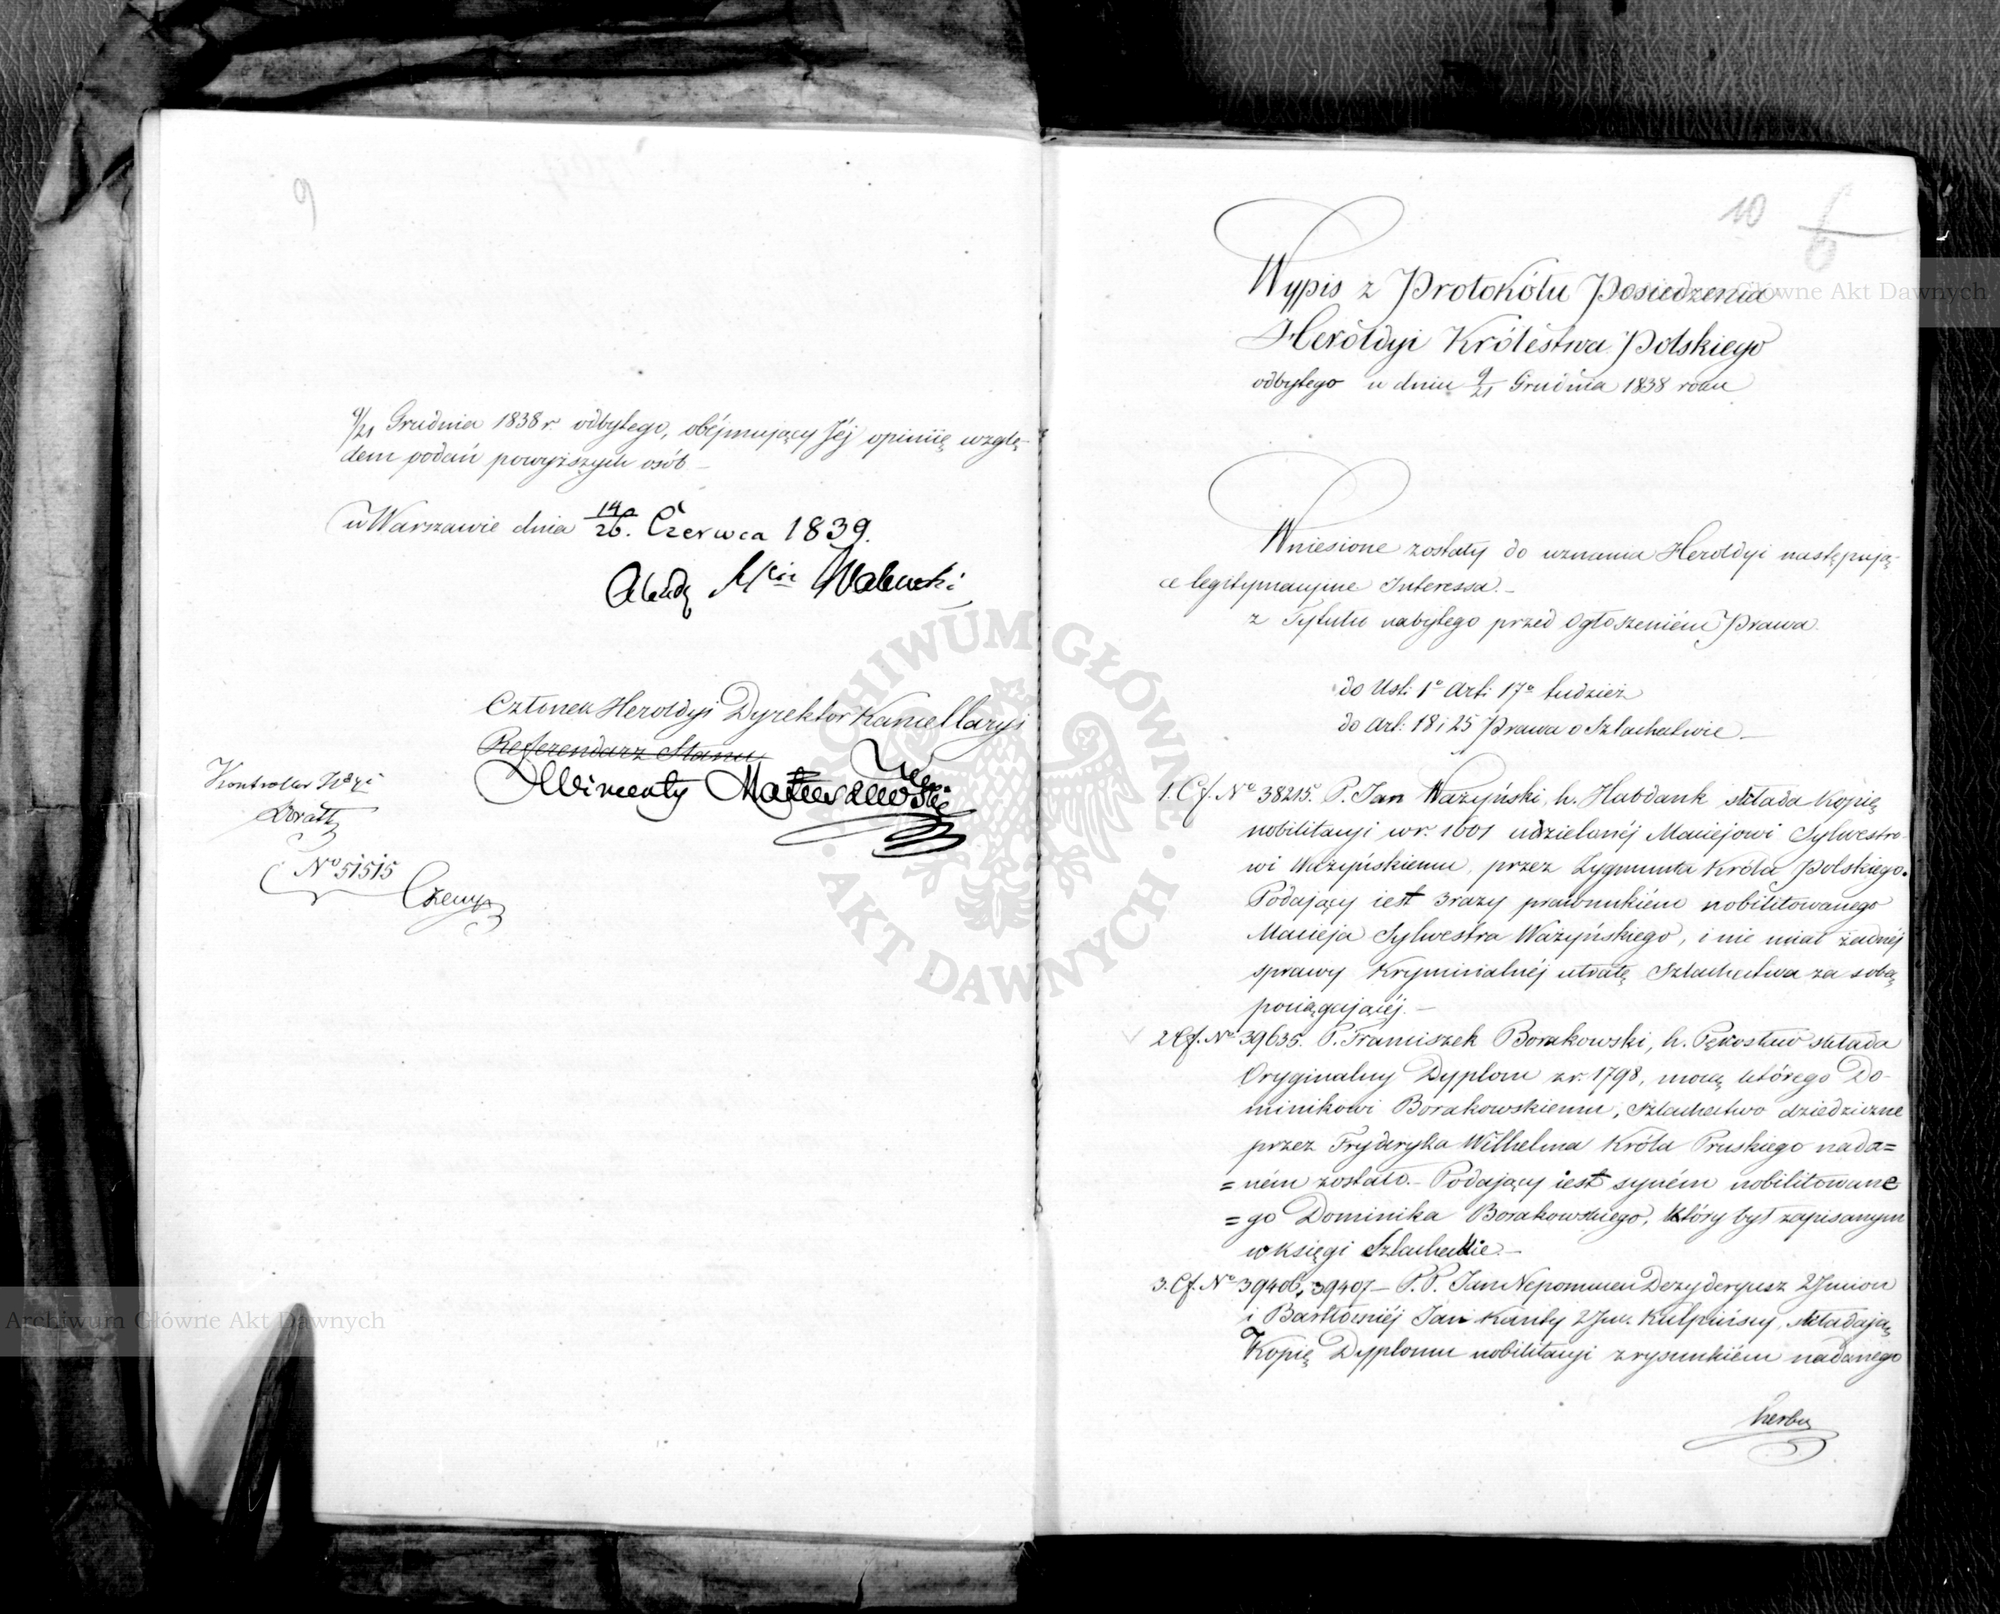 9
9/21 Grudnia 1838 r. odbytego, obéjmujący Jéj opiniię wzglę-
dem podań powyższych osób –
w Warszawie dnia 14/26. Czerwca 1839.
Walewski
Członek Heroldyi Dyrektor Kancellaryi
Referendarz Stanu
Wincenty
Kontroller
No 51515
10
Wypis z Protokółu Posiedzenia
Heroldyi Królestwa Polskiego
odbytego w dniu 9/21 Grudnia 1838 roku
Wniesione zostały do uznania Heroldyi następują-
ce legitymacyjne Interessa. –
z Tytułu nabytego przed Ogłoszeniem Prawa.
do Ust: 1o Art: 17o tudzież
do Art: 18 i 25 Prawa o Szlachectwie –
1. Cf. No 38215. P. Jan Ważyński, h. Habdank składa Kopię
nobilitacyi w r. 1601 udzielonéj Maciejowi Sylwestro-
wi Ważyńskiemu, przez Zygmunta Króla Polskiego.
Podający iest 3 razy prawnukiem nobilitowanego
Macieja Sylwestra Ważyńskiego, i nie miał żadnéj
sprawy Kryminalnéj utratę Szlachectwa za sobą
pociągającéj. –
2 Cf. No 39635. P. Franciszek Borakowski, h. Pękosław składa
Oryginalny Dyplom z r. 1798, mocą którego Do-
minikowi Borakowskiemu, Szlachectwo dziedziczne
przez Fryderyka Wilhelma Króla Pruskiego nada=
=ném zostało. – Podający iest syném nobilitowane
=go Dominika Borakowskiego, który był zapisanym
w księgi Szlacheckie. –
3. Cf. No 39406, 39407 – P.P. Jan Nepomucen Dezyderyusz 2 Imion
i Bartłoméj Jan Kanty 2 Im. Kulpińscy, składają
Kopię Dyplomu nobilitacyi z rysunkiém nadanego
herbu
Archiwum Główne Akt Dawnych
Główne Akt Dawnych
ARCHIWUM GŁÓWNE AKT DAWNYCH